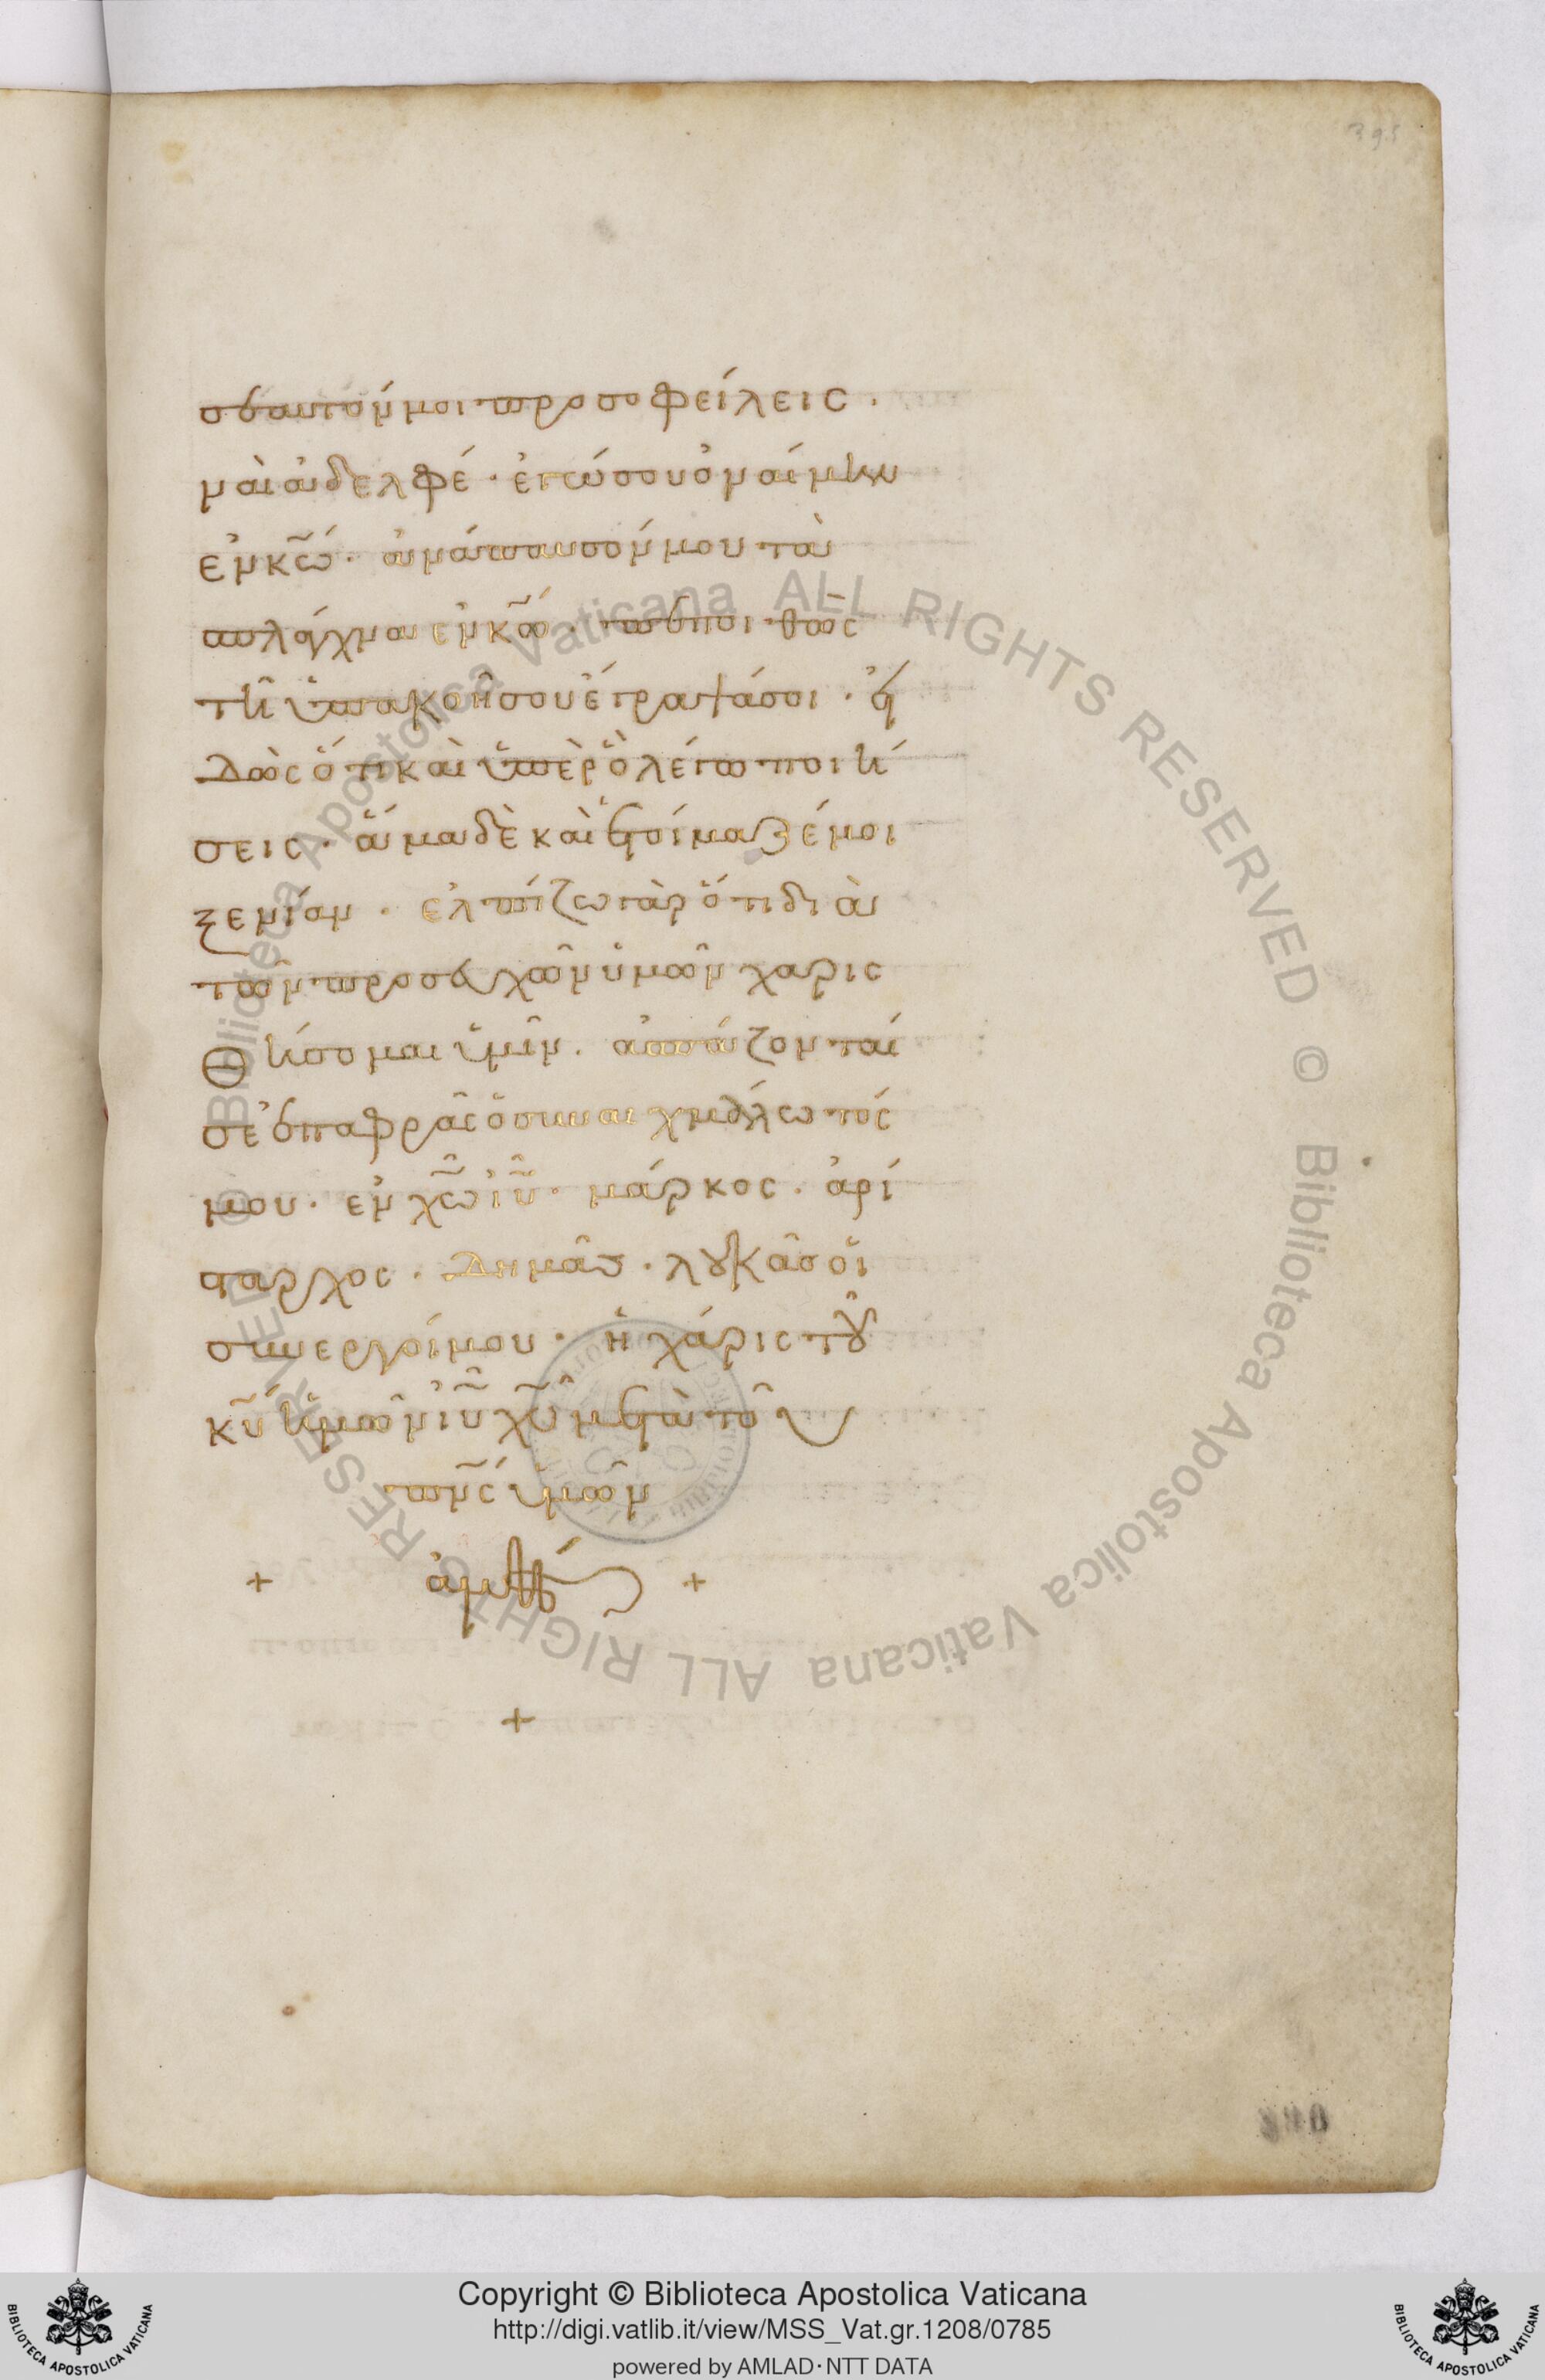 395
σεαυτόν μοι προσοφείλεις ·
ναὶ ἀδελφέ · ἐγώ σου ὀναίμην
ἐν κ̅ω̅ · ἀνάπαυσόν μου τὰ
σπλάγχνα ἐν κ̅ω̅ · πεποιθὼς
τῆ ὑπακοῆ σου ἔγραψά σοι · εἰ
δὼς ὅτι καὶ ὑπὲρ ὃ λέγω ποιή
σεις · ἅμα δὲ καὶ ἑτοίμαζέ μοι
ξενίαν · ἐλπίζω γὰρ ὅτι διὰ
τῶν προσευχῶν ὑμῶν χαρις
θήσομαι ὑμῖν · ἀσπάζονταί
σε ἐπαφρᾶς ὁ συναιχμάλωτός
μου · ἐν χ̅ω̅ ι̅υ̅ · μάρκος · ἀρί
σταρχος · Δημᾶς · λουκᾶς οἱ
συνεργοί μου · ἡ χάρις τοῦ
κ̅υ̅ ἡμῶν ι̅υ̅ χ̅υ̅ μετὰ τοῦ
π̅ν̅ς̅ ὑμῶν
+ ἀμήν +
+
Biblioteca Apostolica Vaticana ALL RIGHTS RESERVED ©
Biblioteca Apostolica Vaticana ALL RIGHTS RESERVED ©
Copyright © Biblioteca Apostolica Vaticana
http://digi.vatlib.it/view/MSS_Vat.gr.1208/0785
powered by AMLAD·NTT DATA
BIBLIOTECA APOSTOLICA VATICANA
BIBLIOTECA APOSTOLICA VATICANA